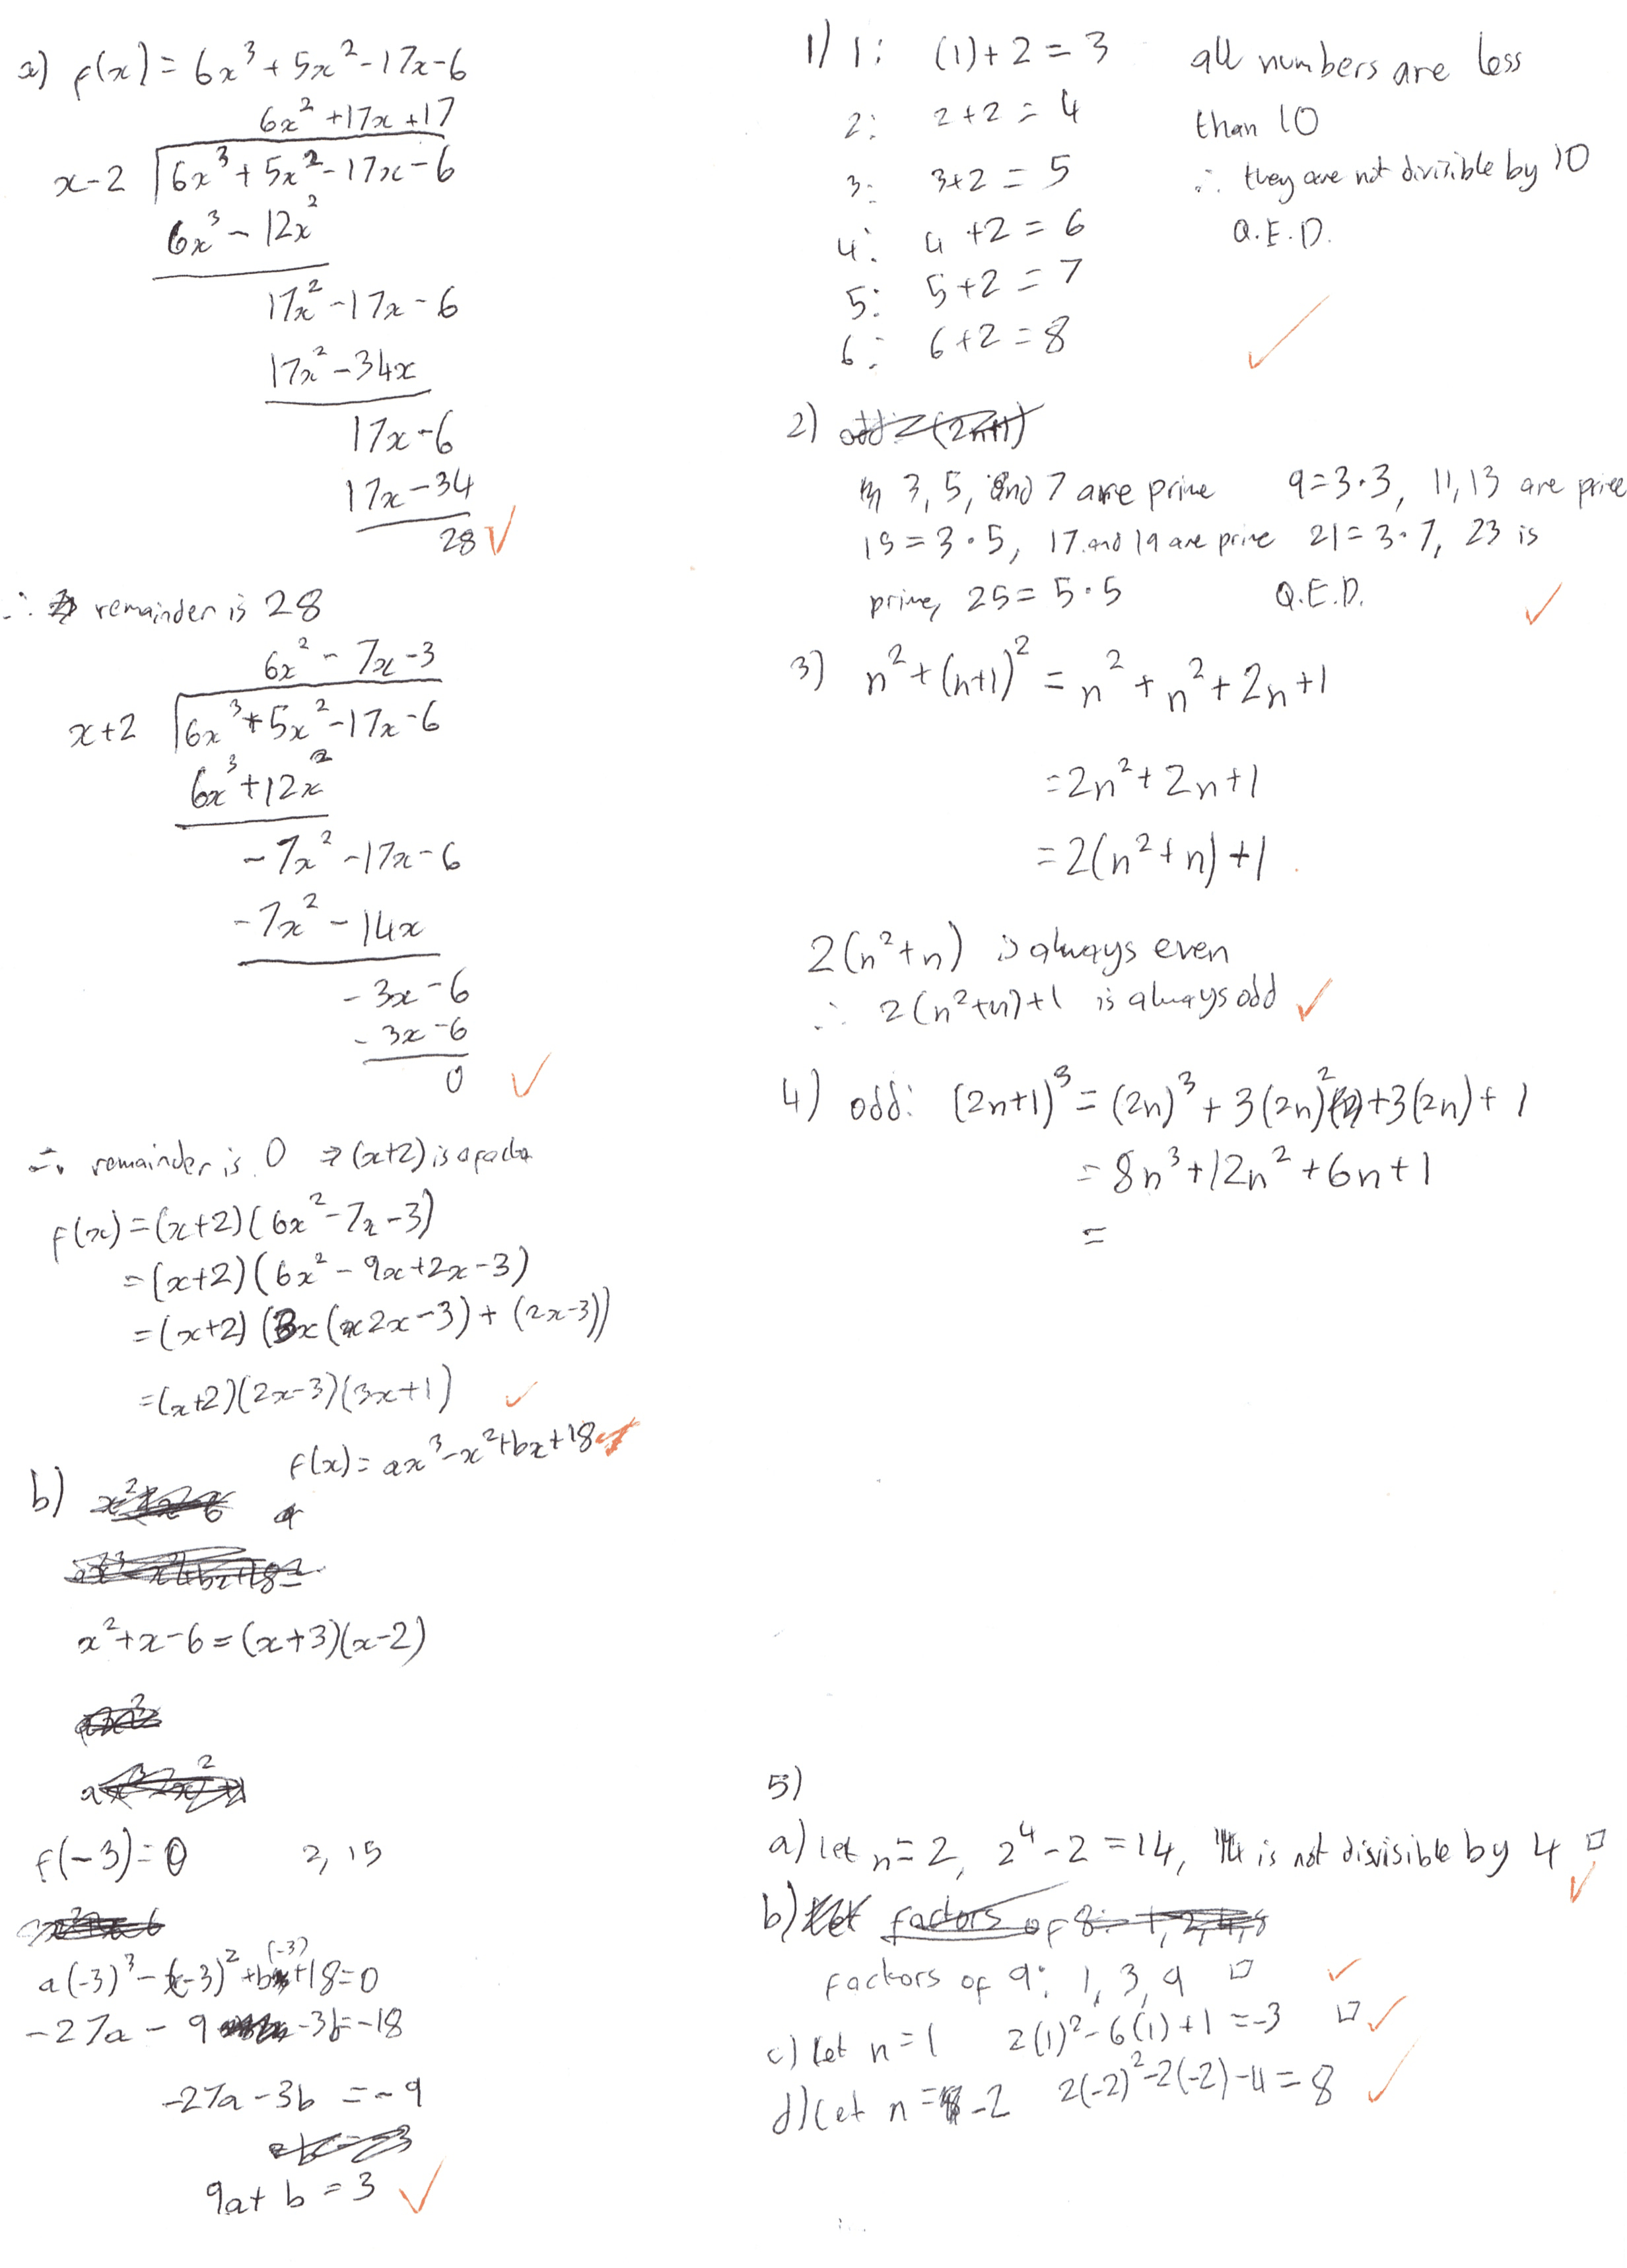 a) f(x) = 6x³ + 5x² - 17x - 6
6x² + 17x + 17
x - 2 6x³ + 5x² - 17x - 6
6x³ - 12x²
17x² - 17x - 6
17x² - 34x
17x - 6
17x - 34
28
∴ remainder is 28
6x² - 7x - 3
x + 2 6x³ + 5x² - 17x - 6
6x³ + 12x²
- 7x² - 17x - 6
- 7x² - 14x
- 3x - 6
- 3x - 6
0
∴ remainder is 0 ⇒ (x+2) is a factor
f(x) = (x+2)(6x² - 7x - 3)
= (x+2)(6x² - 9x + 2x - 3)
= (x+2)(3x(2x - 3) + (2x-3))
= (x+2)(2x-3)(3x+1)
f(x) = ax³ - x² + bx + 18
b)
x² + x - 6 = (x+3)(x-2)
f(-3) = 0 2, 15
a(-3)³ - (-3)² + b(-3) + 18 = 0
-27a - 9 - 3b = -18
-27a - 3b = -9
9a + b = 3
1) 1: (1) + 2 = 3 all numbers are less
2: 2 + 2 = 4 than 10
3: 3+2 = 5 ∴ they are not divisible by 10
4: 4 + 2 = 6 Q.E.D.
5: 5+2 = 7
6: 6+2 = 8
2) odd: 2(2n+1)
3, 5, and 7 are prime 9 = 3·3, 11, 13 are price
15 = 3·5, 17 and 19 are prime 21 = 3·7, 23 is
prime, 25 = 5·5 Q.E.D.
3) n² + (n+1)² = n² + n² + 2n + 1
= 2n² + 2n + 1
= 2(n² + n) + 1
2(n² + n) is always even
∴ 2(n² + n) + 1 is always odd
4) odd: (2n+1)³ = (2n)³ + 3(2n)² + 3(2n) + 1
= 8n³ + 12n² + 6n + 1
=
5)
a) let n = 2, 2⁴ - 2 = 14, 14 is not divisible by 4 □
b) let factors of 8: 1, 2, 4, 8
factors of 9: 1, 3, 9 □
c) let n = 1 2(1)² - 6(1) + 1 = -3 □
d) let n = -2 2(-2)² - 2(-2) - 4 = 8